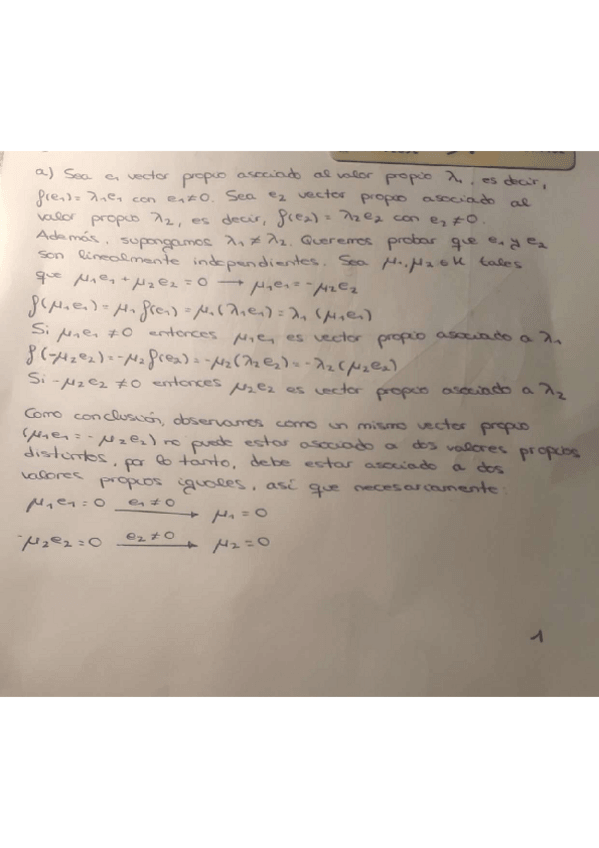 a) Sea e₁ vector propio asociado al valor propio λ₁, es decir,
f(e₁)=λ₁e₁ con e₁≠0. Sea e₂ vector propio asociado al
valor propio λ₂, es decir, f(e₂)=λ₂e₂ con e₂≠0.
Además, supongamos λ₁≠λ₂. Queremos probar que e₁ y e₂
son linealmente independientes. Sea μ₁,μ₂∈K tales
que μ₁e₁+μ₂e₂=0 → μ₁e₁=-μ₂e₂
f(μ₁e₁)=μ₁f(e₁)=μ₁(λ₁e₁)=λ₁(μ₁e₁)
Si μ₁e₁≠0 entonces μ₁e₁ es vector propio asociado a λ₁
f(-μ₂e₂)=-μ₂f(e₂)=-μ₂(λ₂e₂)=-λ₂(μ₂e₂)
Si -μ₂e₂≠0 entonces μ₂e₂ es vector propio asociado a λ₂
Como conclusión, observamos como un mismo vector propio
(μ₁e₁=-μ₂e₂) no puede estar asociado a dos valores propios
distintos, por lo tanto, debe estar asociado a dos
valores propios iguales, así que necesariamente:
μ₁e₁=0 e₁≠0 → μ₁=0
-μ₂e₂=0 e₂≠0 → μ₂=0
1